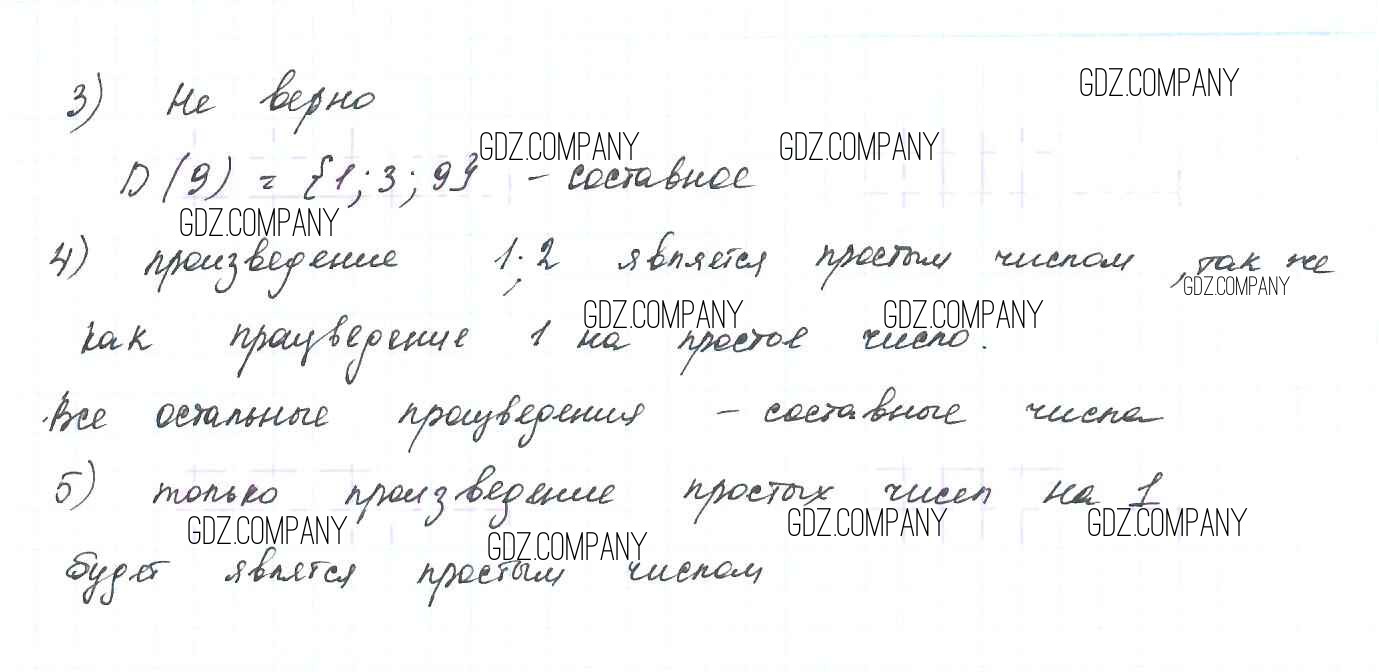 3) Не верно
GDZ.COMPANY
D(9) = {1; 3; 9} - составное
GDZ.COMPANY GDZ.COMPANY
GDZ.COMPANY
4) произведение 1·2 является простым числом, так же
GDZ.COMPANY
как произведение 1 на простое число.
GDZ.COMPANY GDZ.COMPANY
Все остальные произведения - составные числа
5) только произведение простых чисел на 1
GDZ.COMPANY GDZ.COMPANY GDZ.COMPANY GDZ.COMPANY
будет являтся простым числом